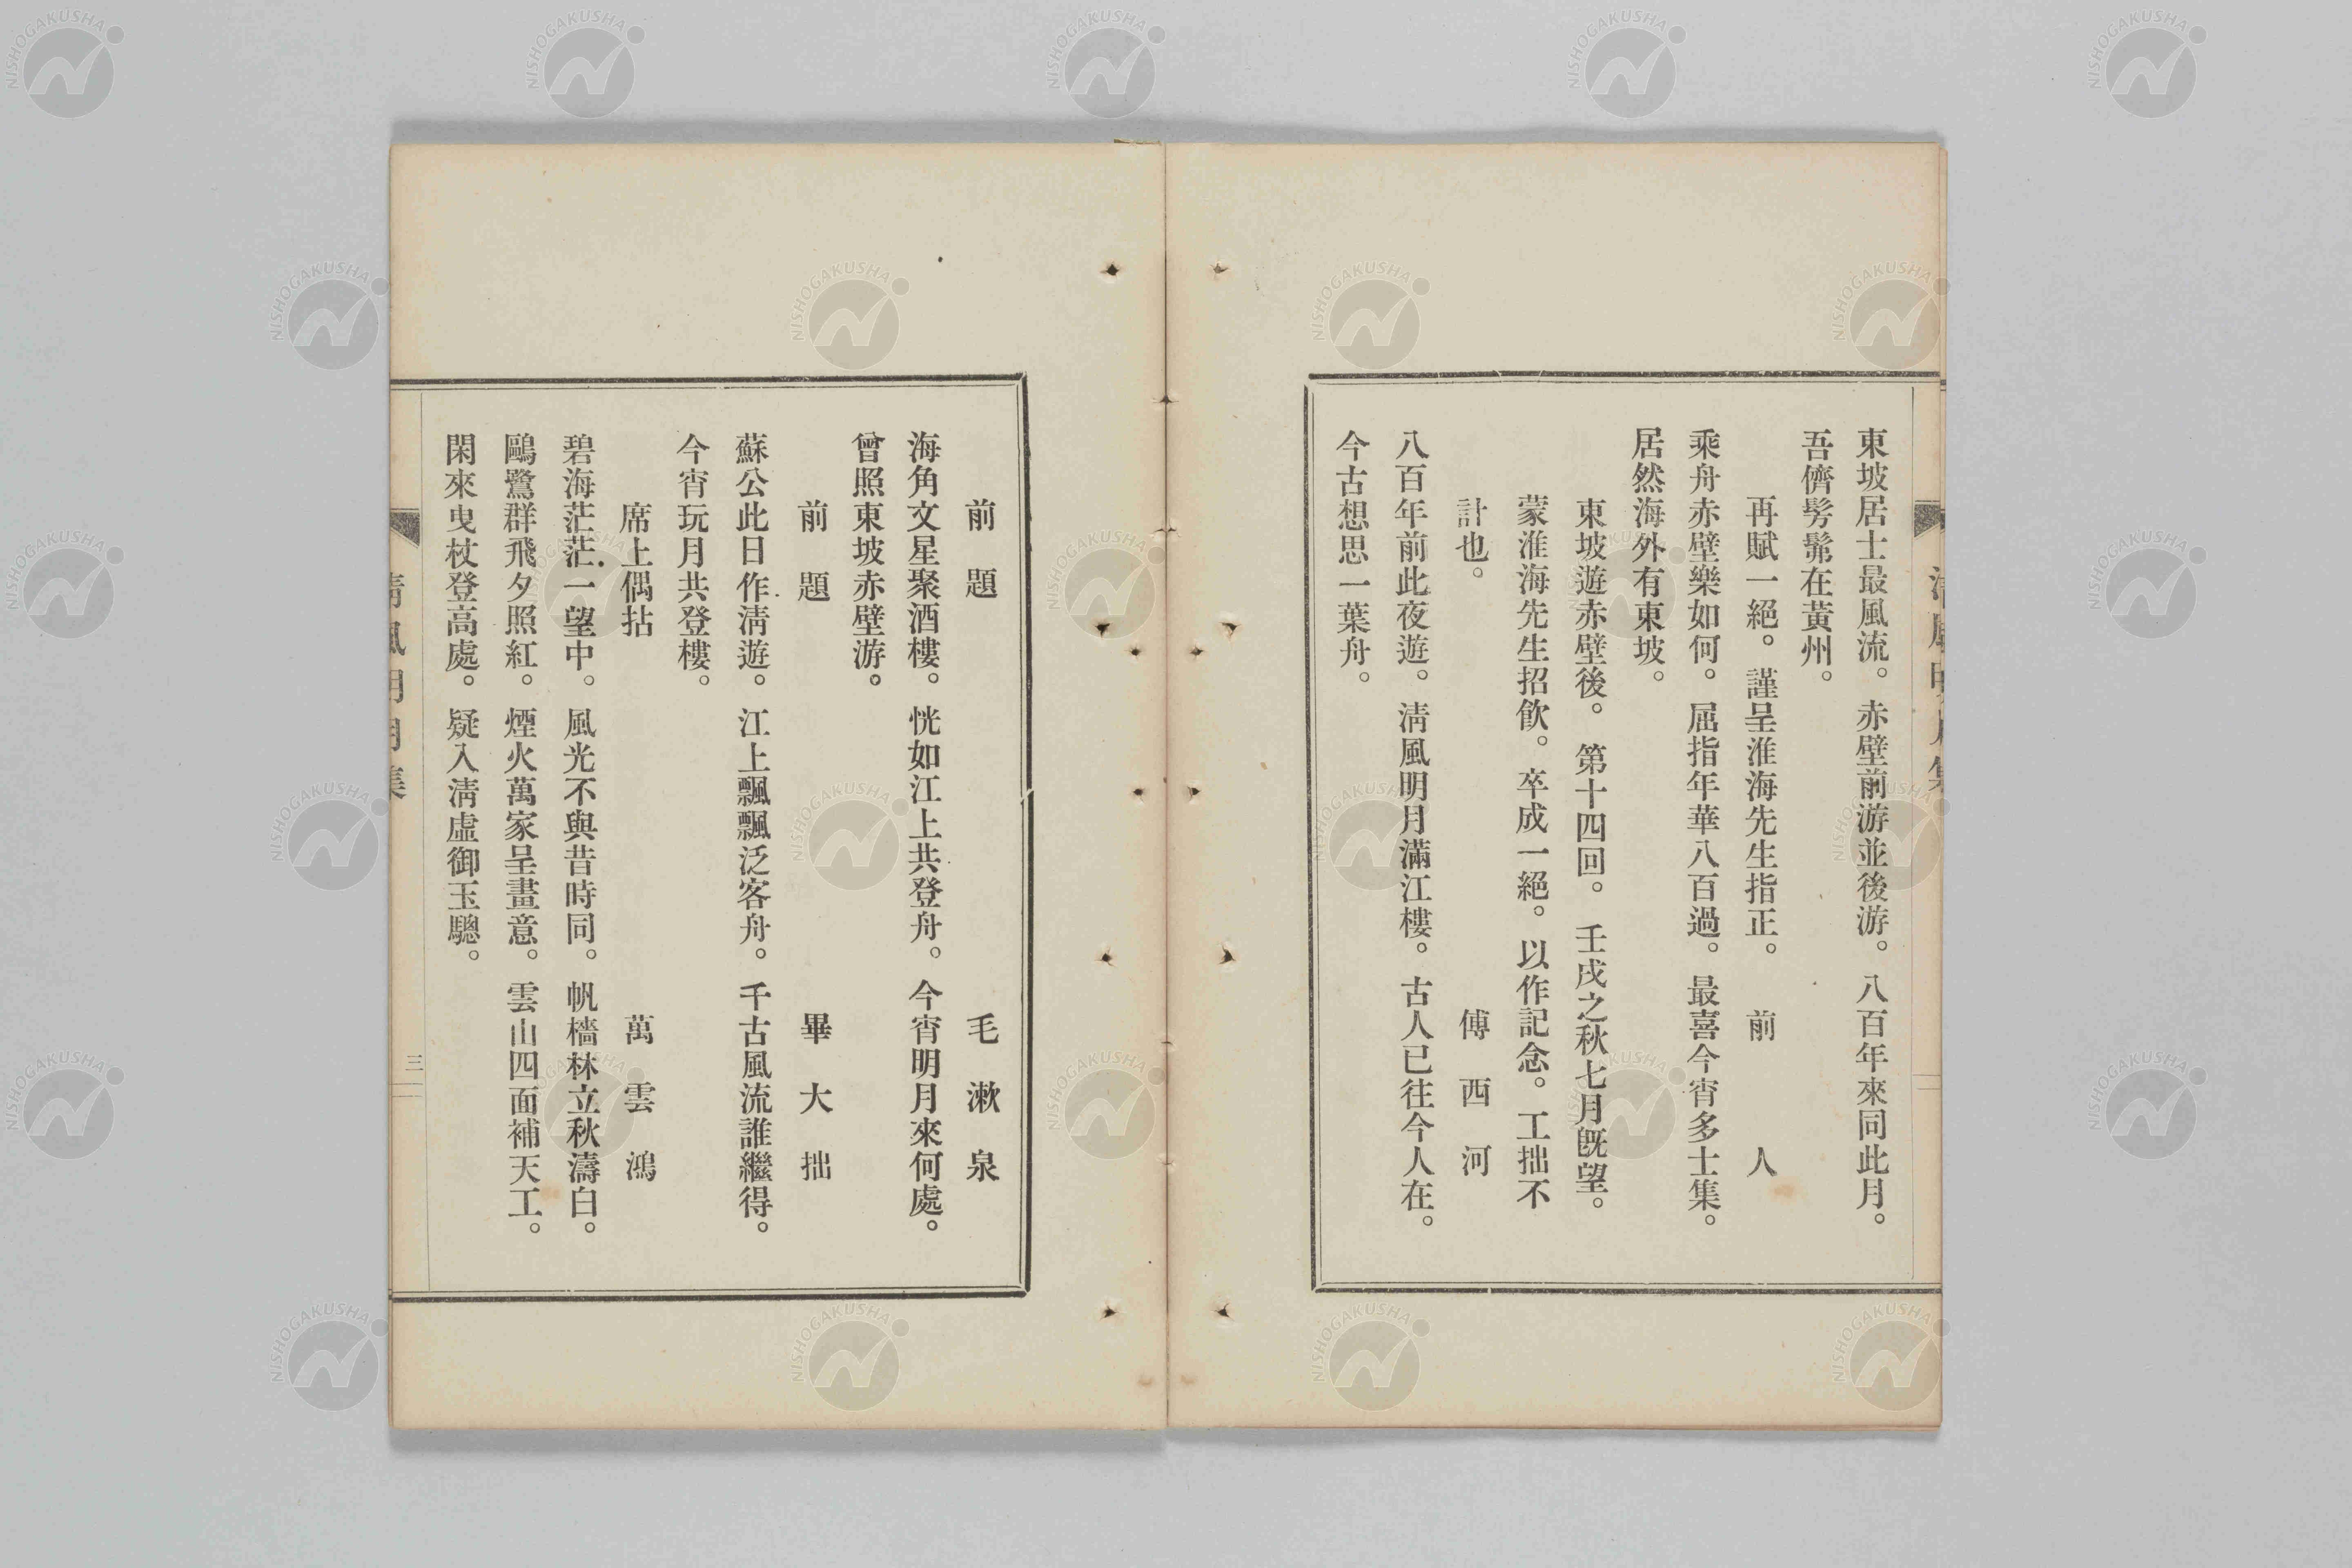 東坡居士最風流。赤壁前游並後游。八百年來同此月。
吾儕髣髴在黃州。
再賦一絕。謹呈淮海先生指正。 前人
乘舟赤壁樂如何。屈指年華八百過。最喜今宵多士集。
居然海外有東坡。
東坡遊赤壁後。第十四回。壬戌之秋七月旣望。
蒙淮海先生招飮。卒成一絕。以作記念。工拙不
計也。 傅西河
八百年前此夜遊。淸風明月滿江樓。古人已往今人在。
今古想思一葉舟。
前題 毛漱泉
海角文星聚酒樓。恍如江上共登舟。今宵明月來何處。
曾照東坡赤壁游。
前題 畢大拙
蘇公此日作淸遊。江上飄飄泛客舟。千古風流誰繼得。
今宵玩月共登樓。
席上偶拈 萬雲鴻
碧海茫茫一望中。風光不與昔時同。帆檣林立秋濤白。
鷗鷺群飛夕照紅。煙火萬家呈畫意。雲山四面補天工。
閑來曳杖登高處。疑入淸虛御玉驄。
淸風明月集
三
NISHOGAKUSHA